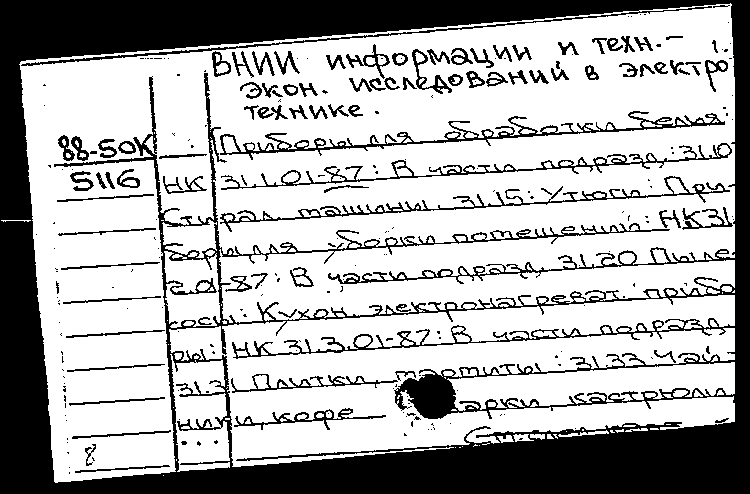 ВНИИ информации и техн.-
экон. исследований в электро
технике.
88-50К [Приборы для обработки белья:
5116 НК 31.1.01-87: В части подразд.: 31.10
Стирал. машины. 31.15: Утюги: При-
боры для уборки помещений: НК 31.
2.01-87: В части подразд. 31.20 Пыле-
сосы: Кухон. электронагреват. прибо
ры: НК 31.3.01-87: В части подразд.
31.31 Плитки, мармиты: 31.33 Чай-
ники, кофе арки, кастрюли,
См. след.
8